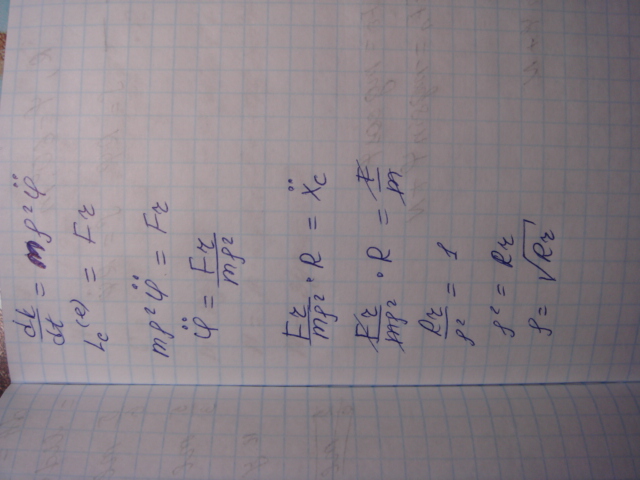 dL/dt = mρ²φ̈
L_c^(e) = Fr
mρ²φ̈ = Fr
φ̈ = Fr/mρ²
Fr/mρ² · R = ẍ_c
Fr/mρ² · R = F/m
Rr/ρ² = 1
ρ² = Rr
ρ = √Rr